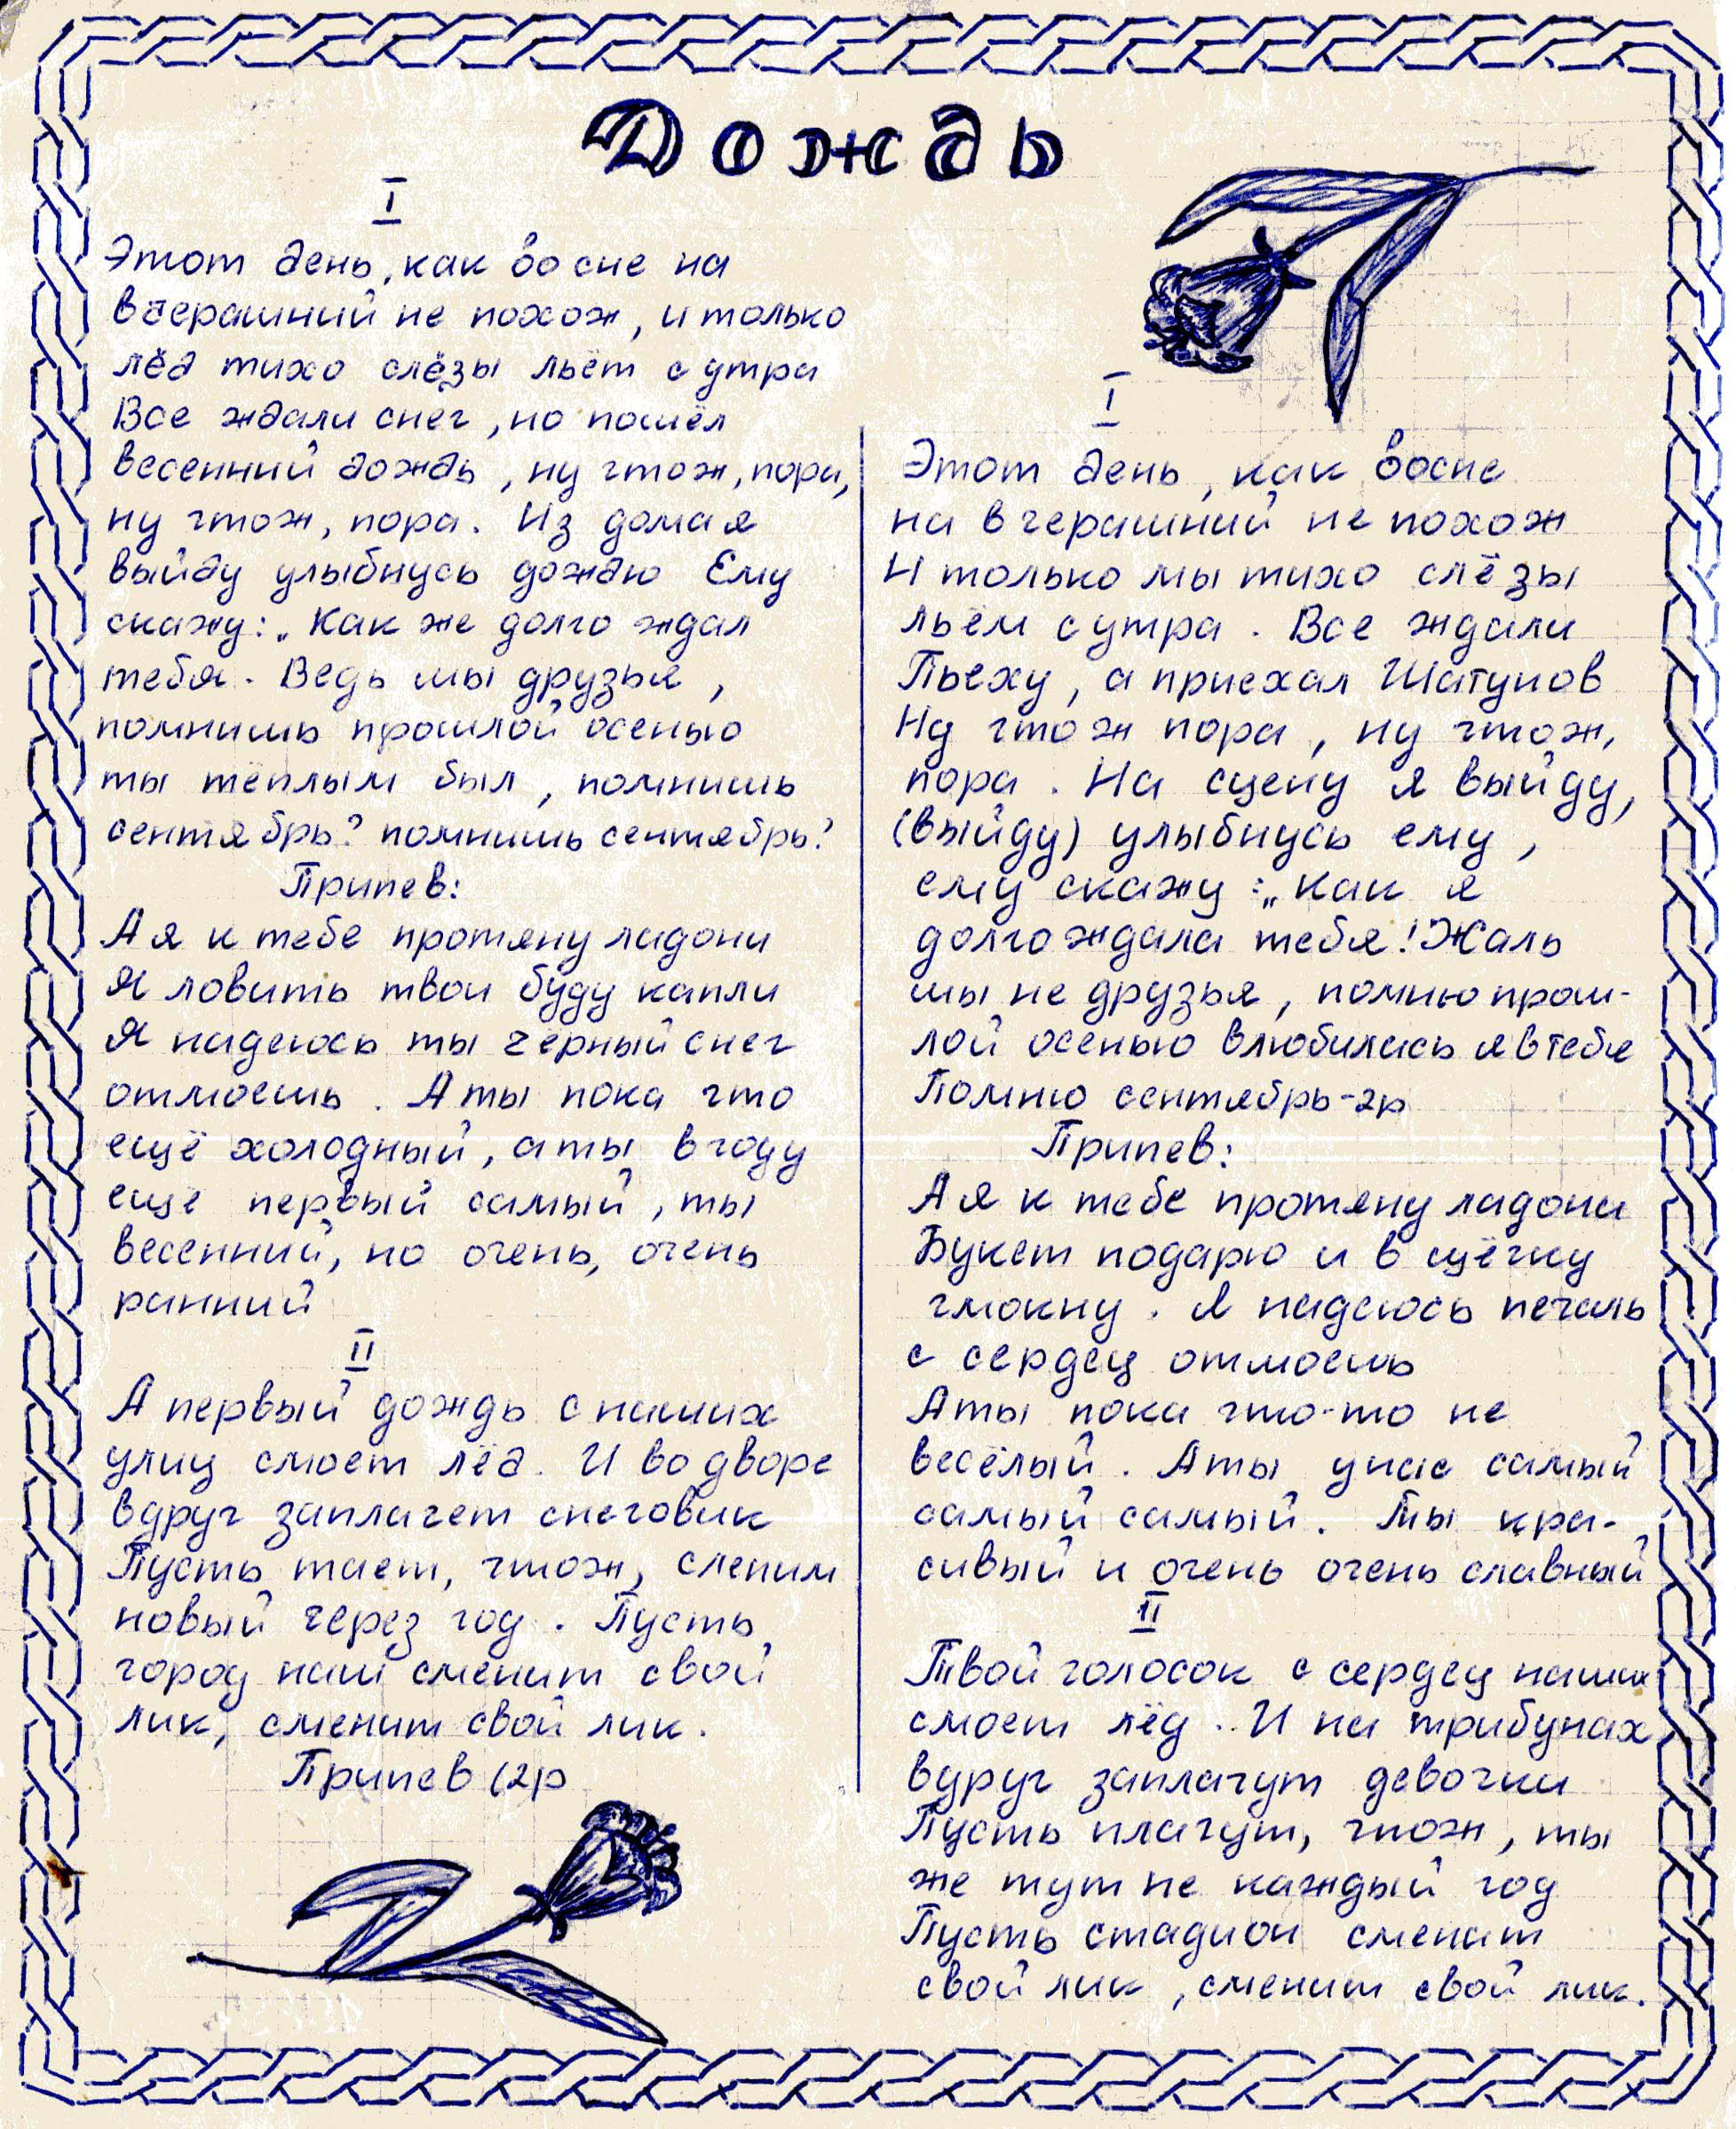 Дождь
I
Этот день, как во сне на
вчерашний не похож, и только
лёд тихо слёзы льёт с утра
Все ждали снег, но пошёл
весенний дождь, ну чтож, пора,
ну чтож, пора. Из дома я
выйду улыбнусь дождю Ему
скажу: „Как же долго ждал
тебя. Ведь мы друзья,
помнишь прошлой осенью
ты тёплым был, помнишь
сентябрь? помнишь сентябрь?
Припев:
А я к тебе протяну ладони
Я ловить твои буду капли
Я надеюсь ты чёрный снег
отмоешь. А ты пока что
ещё холодный, а ты в году
ещё первый самый, ты
весенний, но очень, очень
ранний
II
А первый дождь с наших
улиц смоет лёд. И во дворе
вдруг заплачет снеговик
Пусть тает, чтож, слепим
новый через год. Пусть
город наш сменит свой
лик, сменит свой лик.
Припев (2р
I
Этот день, как восне
на вчерашний не похож
И только мы тихо слёзы
льём с утра. Все ждали
Пьеху, а приехал Шатунов
Ну чтож пора, ну чтож,
пора. На сцену я выйду,
(выйду) улыбнусь ему,
ему скажу: „Как я
долго ждала тебя! Жаль
мы не друзья, помню прош-
лой осенью влюбилась я в тебя
Помню сентябрь-2р
Припев:
А я к тебе протяну ладони
Букет подарю и в щёчку
чмокну. Я надеюсь печаль
с сердец отмоешь
А ты пока что-то не
весёлый. А ты у нас самый
самый самый. Ты кра-
сивый и очень очень славный
II
Твой голосок с сердец наших
смоет лёд. И на трибунах
вдруг заплачут девочки
Пусть плачут, чтож, ты
же тут не каждый год
Пусть стадион сменит
свой лик, сменит свой лик.